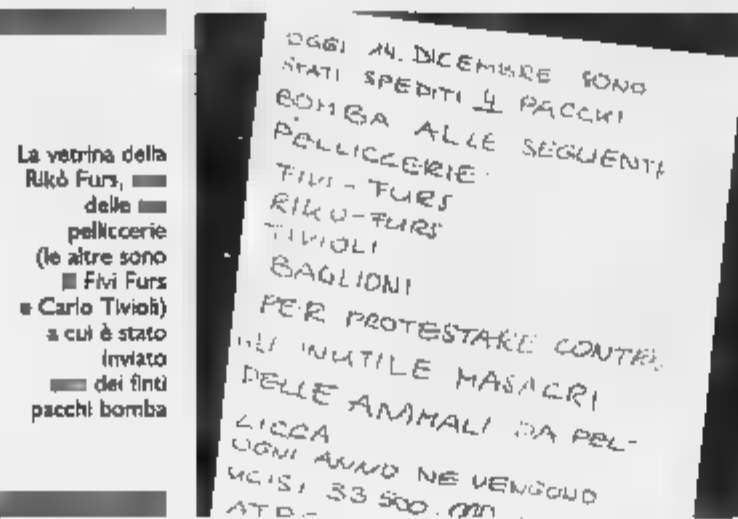 La vetrina della
Rikò Furs,
delle
pelliccerie
(le altre sono
Fivi Furs
e Carlo Tivioli)
a cui è stato
inviato
dei finti
pacchi bomba
OGGI 14. DICEMBRE SONO
STATI SPEDITI 4 PACCHI
BOMBA ALLE SEGUENTI
PELLICCERIE
FIVI-FURS
RIKO-FURS
TIVIOLI
BAGLIONI
PER PROTESTARE CONTRO
GLI INUTILE MASACRI
DELLE ANIMALI DA PEL-
LICCA
OGNI ANNO NE VENGONO
UCISI 33 500.000